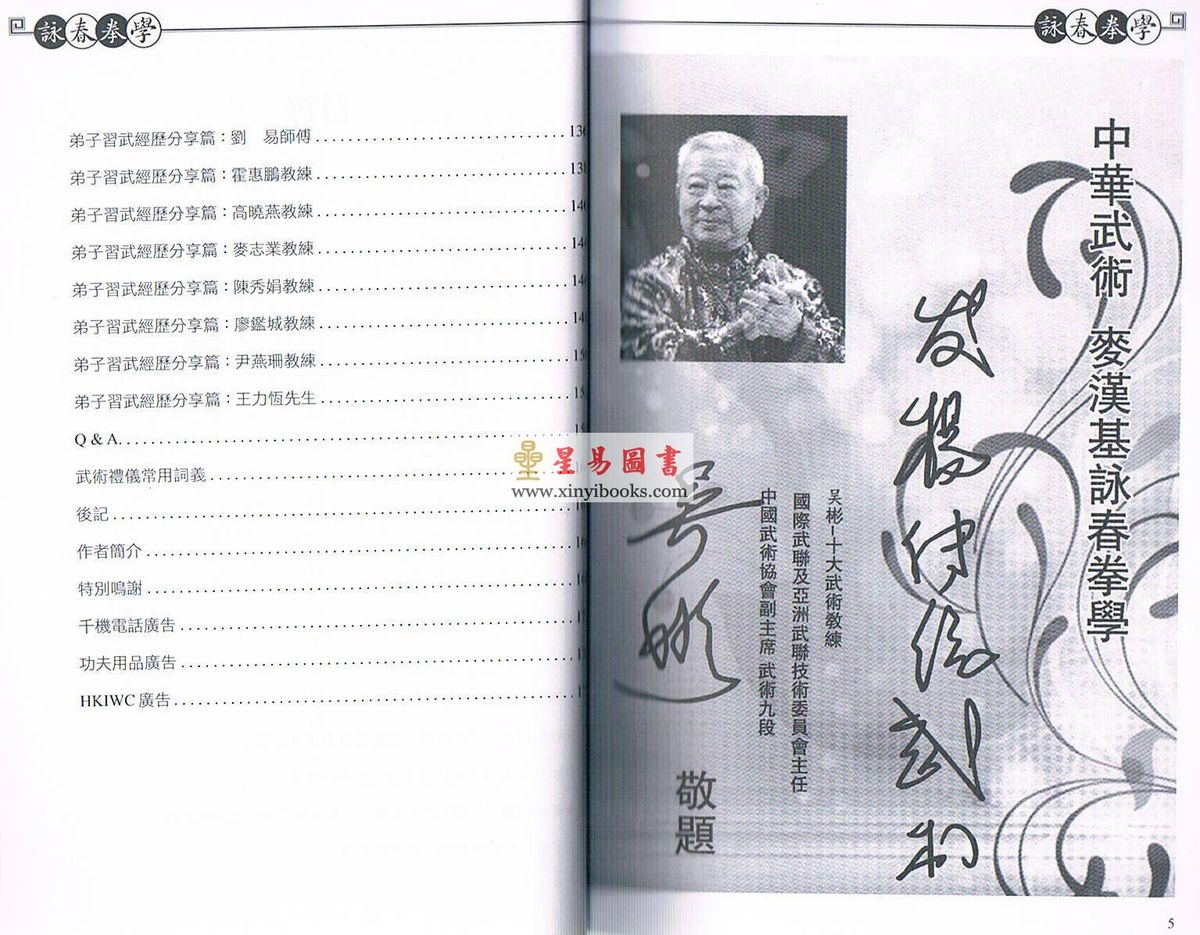 詠春拳學
弟子習武經歷分享篇：劉　易師傅
弟子習武經歷分享篇：霍惠鵬教練
弟子習武經歷分享篇：高曉燕教練
弟子習武經歷分享篇：麥志業教練
弟子習武經歷分享篇：陳秀娟教練
弟子習武經歷分享篇：廖鑑城教練
弟子習武經歷分享篇：尹燕珊教練
弟子習武經歷分享篇：王力恆先生
Q & A
武術禮儀常用詞義
後記
作者簡介
特別鳴謝
千機電話廣告
功夫用品廣告
HKIWC 廣告
詠春拳學
中華武術　麥漢基詠春拳學
发揚传统武术
吴彬–十大武術教練
國際武聯及亞洲武聯技術委員會主任
中國武術協會副主席 武術九段
吴彬
敬題
5
星易圖書
www.xinyibooks.com